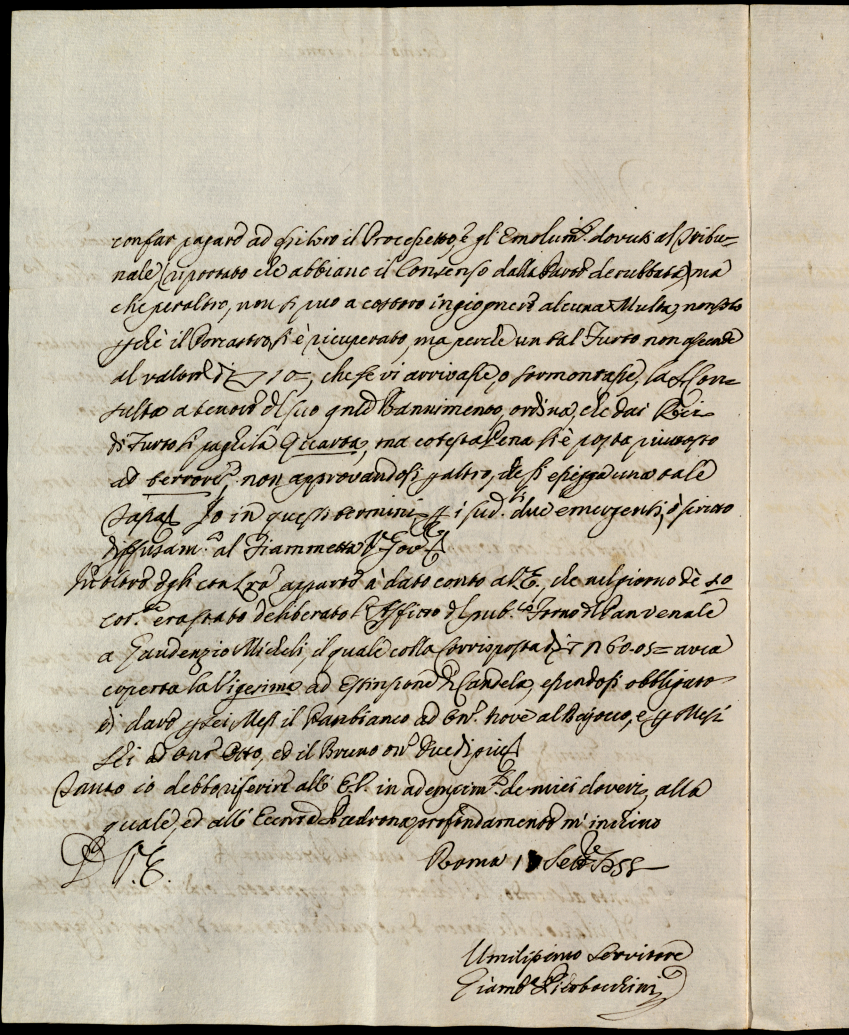 con far pagare ad essi loro il Processetto, e gl'Emolum.ti dovuti al Tribu=
nale, (riportato che abbiano il Consenso dalla Parte derubbata) ma
che peraltro, non si può a costoro ingiognere alcuna Multa, non solo
perchè il Porcastro si è ricuperato, ma perchè un tal Furto non ascende
al valore di 10=, che se vi arrivasse, o sormontasse, la
a tenore del suo Bannimento, ordina, che dai Rei
di Furto si paghi la Quarta, ma cotesta Pena si è posta piuttosto
ad terrorem, non approvandosi per altro, che si esigga una tale
Tassa. Io in questi termini per i sud.ti due emergenti, ò scritto
diffusam.e al Fiammetta V. Gov.re
Inoltre degli con Lra apparte à dato conto all'E. che nel giorno de 10
cor.te era stato deliberato l'Affitto del pub.co Forno del Pan venale
a Gaudenzio Micheli, il quale colla Corrisposta di 60-05= avea
coperta la Vigesima ad Estinsione di Candela, essendosi obbligato
di dare per sei Mesi il Pan bianco ad On.e nove al Bajocco, e per Mesi
sei ad On.e Otto, ed il Bruno on.e due di più
Tanto io debbo riferire all'E.V. in adempim.to de miei doveri, alla
quale, ed all'Eccm̃a Padrona profondamente m'inchino
D. V. E.
Roma 1 Sett.e 1755
Umilissimo Servitore
Giamb.a